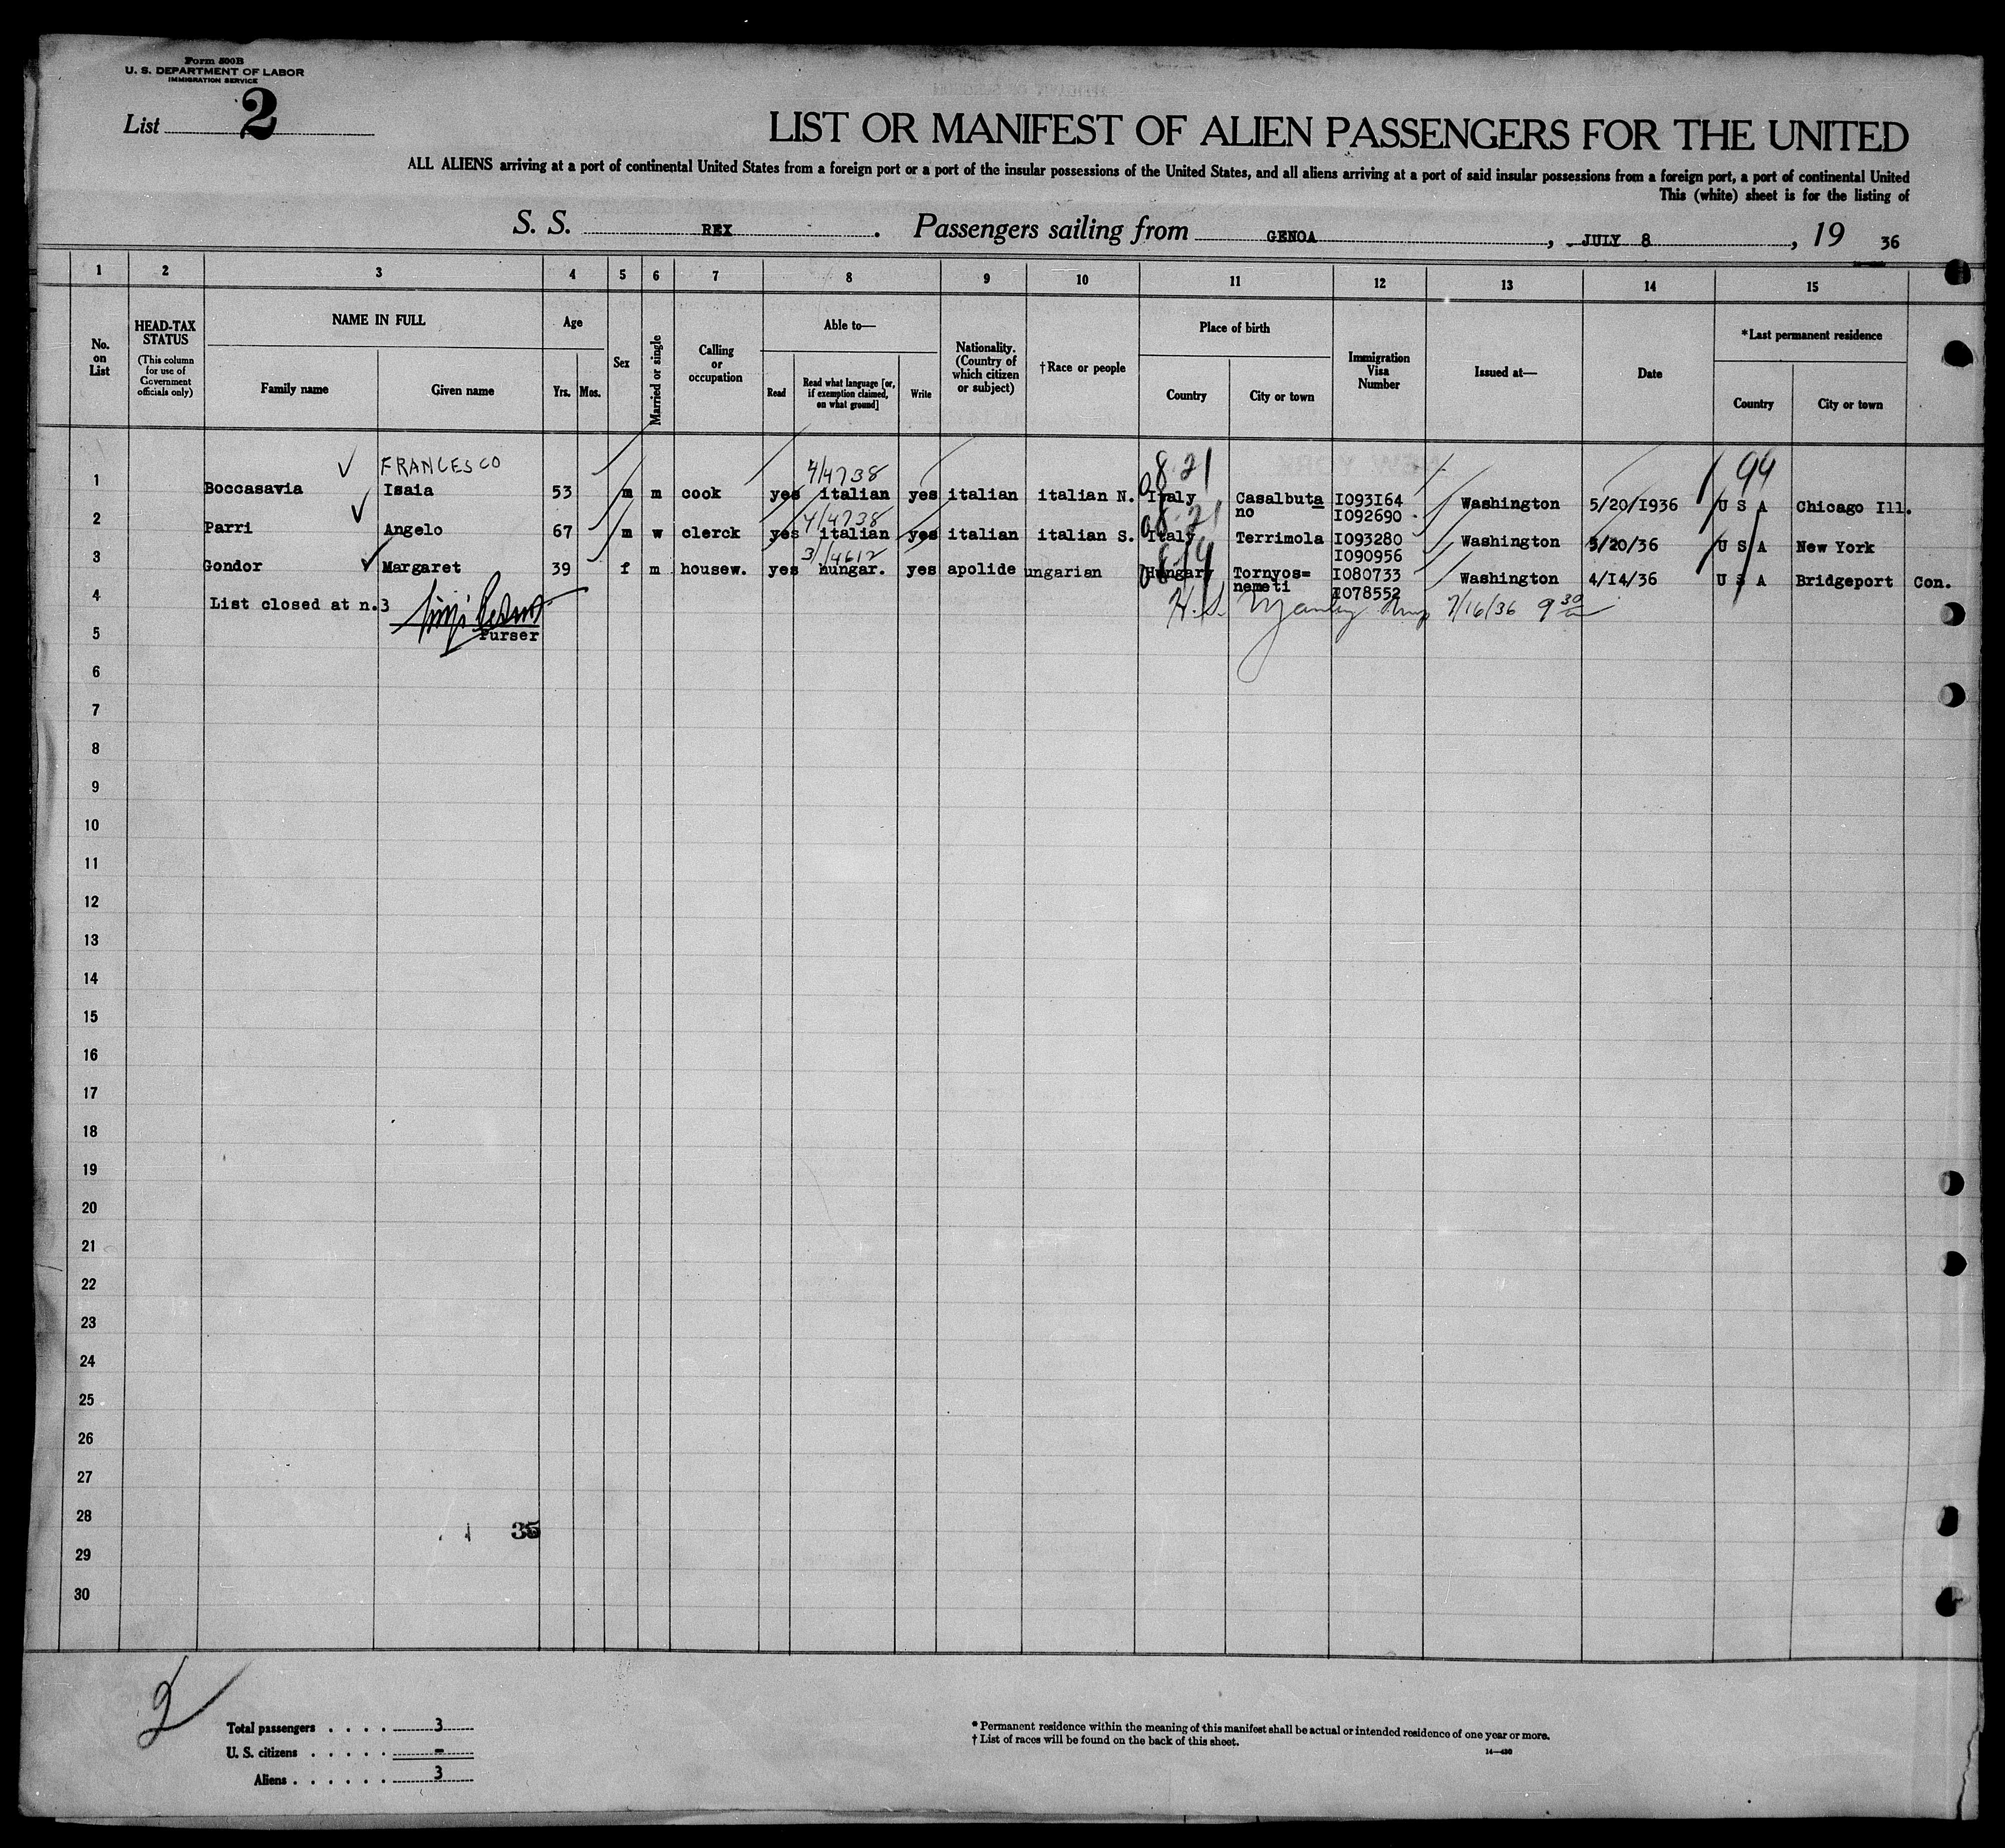 Form 500B
U. S. DEPARTMENT OF LABOR
IMMIGRATION SERVICE
List 2
LIST OR MANIFEST OF ALIEN PASSENGERS FOR THE UNITED
ALL ALIENS arriving at a port of continental United States from a foreign port or a port of the insular possessions of the United States, and all aliens arriving at a port of said insular possessions from a foreign port, a port of continental United
This (white) sheet is for the listing of
S. S. REX . Passengers sailing from GENOA , JULY 8 , 19 36
1 2 3 4 5 6 7 8 9 10 11 12 13 14 15
No. on List
HEAD-TAX STATUS
(This column for use of Government officials only)
NAME IN FULL
Family name
Given name
Age
Yrs. Mos.
Sex
Married or single
Calling or occupation
Able to—
Read
Read what language [or, if exemption claimed, on what ground]
Write
Nationality. (Country of which citizen or subject)
†Race or people
Place of birth
Country
City or town
Immigration Visa Number
Issued at—
Date
*Last permanent residence
Country
City or town
FRANCESCO 4/4738 8 21 99
1 Boccasavia Isaia 53 m m cook yes italian yes italian italian N. Italy Casalbuta no I093I64 I092690 Washington 5/20/I936 U S A Chicago Ill.
4/4738 8 21
2 Parri Angelo 67 m w clerck yes italian yes italian italian S. Italy Terrimola I093280 I090956 Washington 5/20/36 U S A New York
3/4612
3 Gondor Margaret 39 f m housew. yes hungar. yes apolide ungarian Hungary Tornyos= nemeti I080733 I078552 Washington 4/I4/36 U S A Bridgeport Con.
4 List closed at n.3
H. S. 7/16/36 9 30
5 Purser
6
7
8
9
10
11
12
13
14
15
16
17
18
19
20
21
22
23
24
25
26
27
28
35
29
30
2
Total passengers . . . . 3
U. S. citizens . . . . . -
Aliens . . . . . . 3
* Permanent residence within the meaning of this manifest shall be actual or intended residence of one year or more.
† List of races will be found on the back of this sheet.
14—430